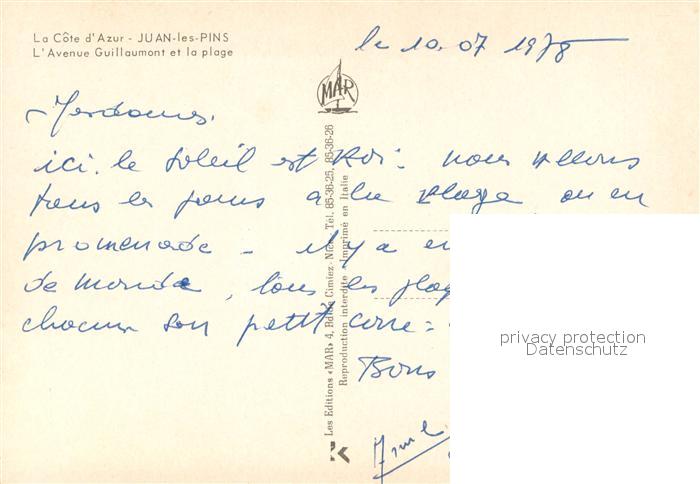 La Côte d'Azur - JUAN-les-PINS
L'Avenue Guillaumont et la plage
le 10.07 1978
MAR
ici. le soleil est Roi. nous allons
tous les jours a la plage ou en
promenade - il y a en
de monde, tous les plag
chacun son petit coin =
Bons
Les Editions «MAR» 4, Bd de Cimiez - Nice Tél. 85-36-25, 85-36-26
Reproduction interdite - Imprimé en Italie
privacy protection
Datenschutz